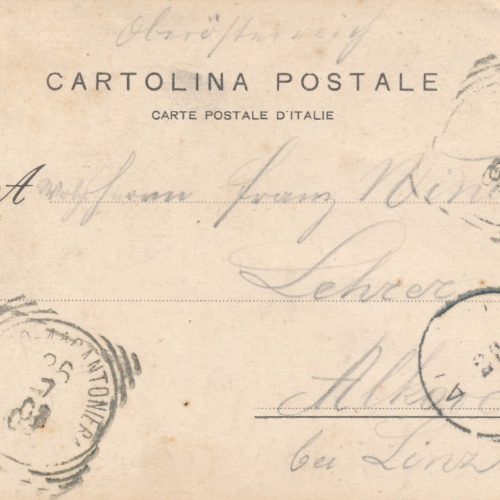 Oberösterreich
CARTOLINA POSTALE
CARTE POSTALE D'ITALIE
A Wohlherrn Franz
Lehrer
Alko
bei Linz